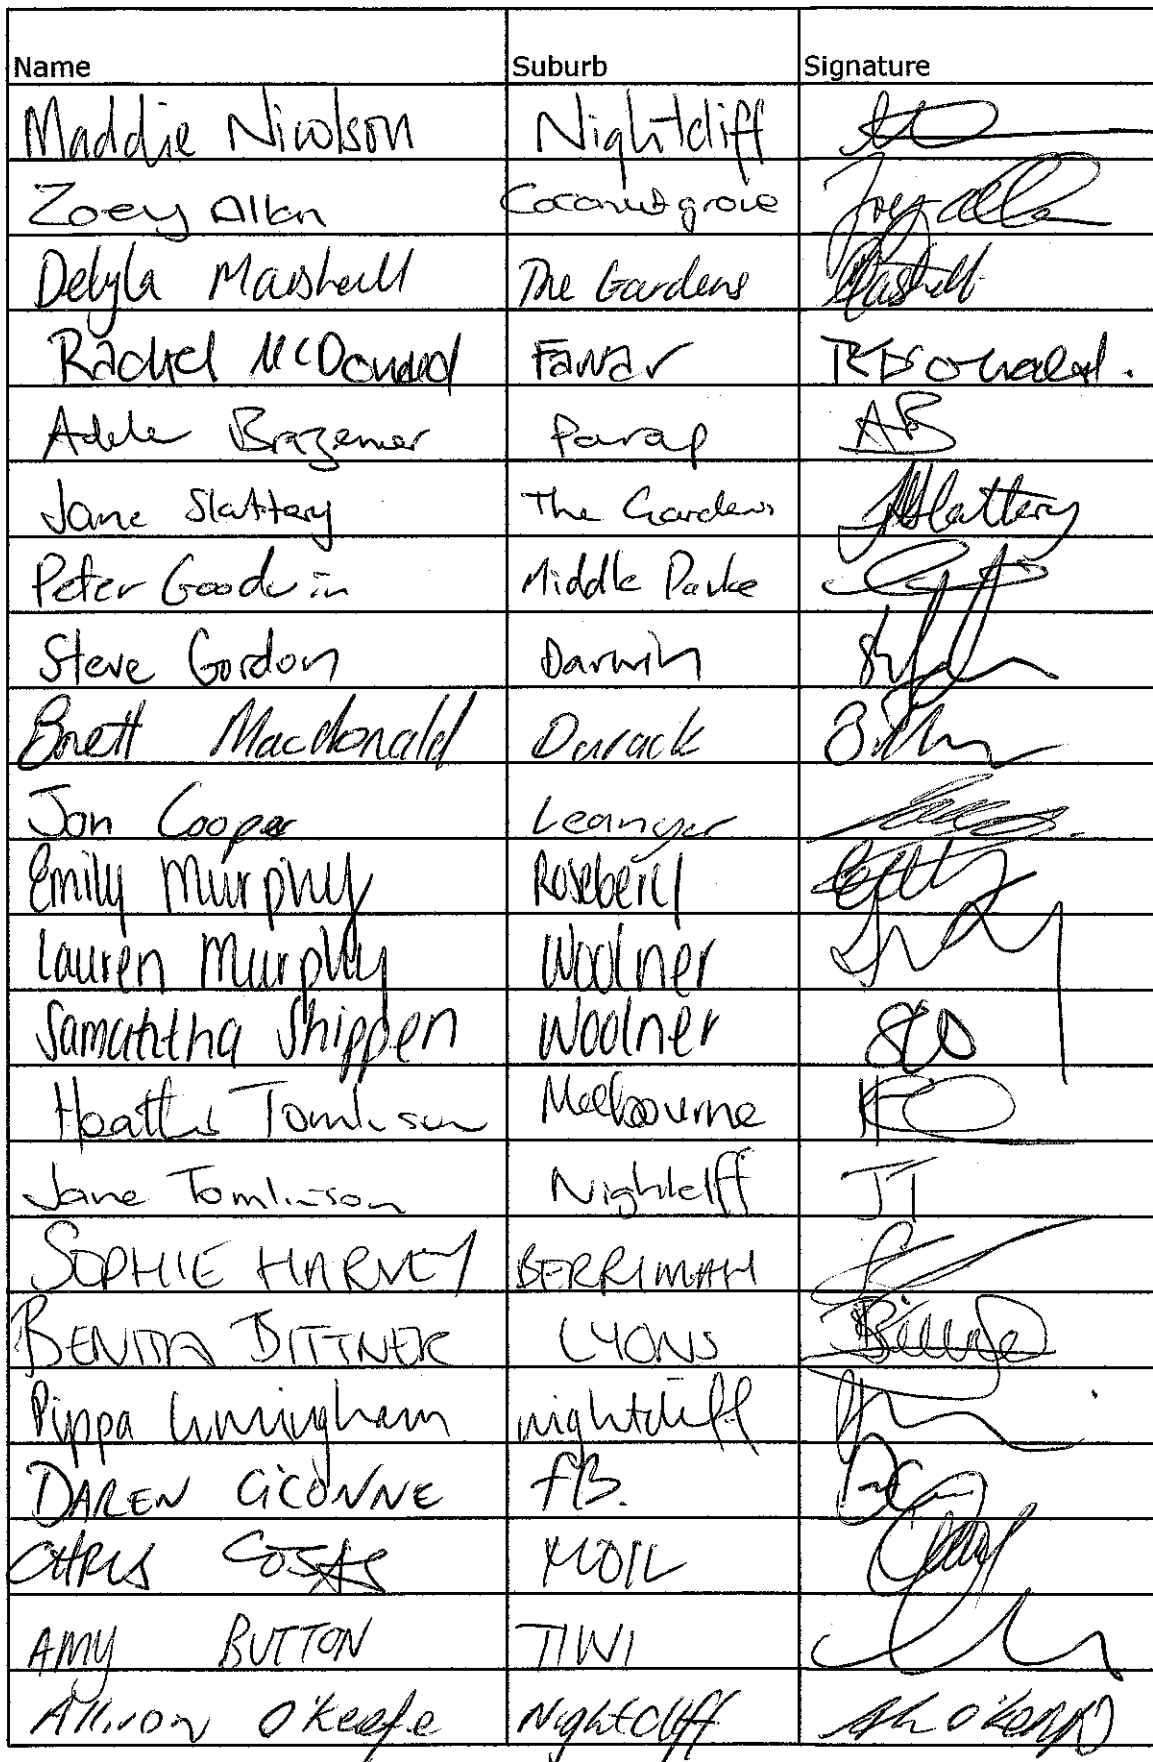 Name Suburb Signature
Maddie Nicolson Nightcliff
Zoey Allan Coconut grove Zoey Alla
Delyla Marshall The Gardens
Rachel McDonald Fannar
Adele Brazener Parap AB
Jane Slattery The Gardens JSlattery
Peter Goodwin Middle Parke
Steve Gordon Darwin
Brett Macdonald Durack
Jon Cooper Leanyer
Emily Murphy Rosebery
Lauren Murphy Woolner
Samantha Shippen Woolner
Heather Tomlinson Melbourne
Jane Tomlinson Nightcliff JT
SOPHIE HARVEY BERRIMAH
BENITA BITTNER LYONS
Pippa Cunningham nightcliff
DAREN CICONNE FB.
CHRIS COSTA MOIL
AMY BUTTON TIWI
Allison O'Keefe Nightcliff